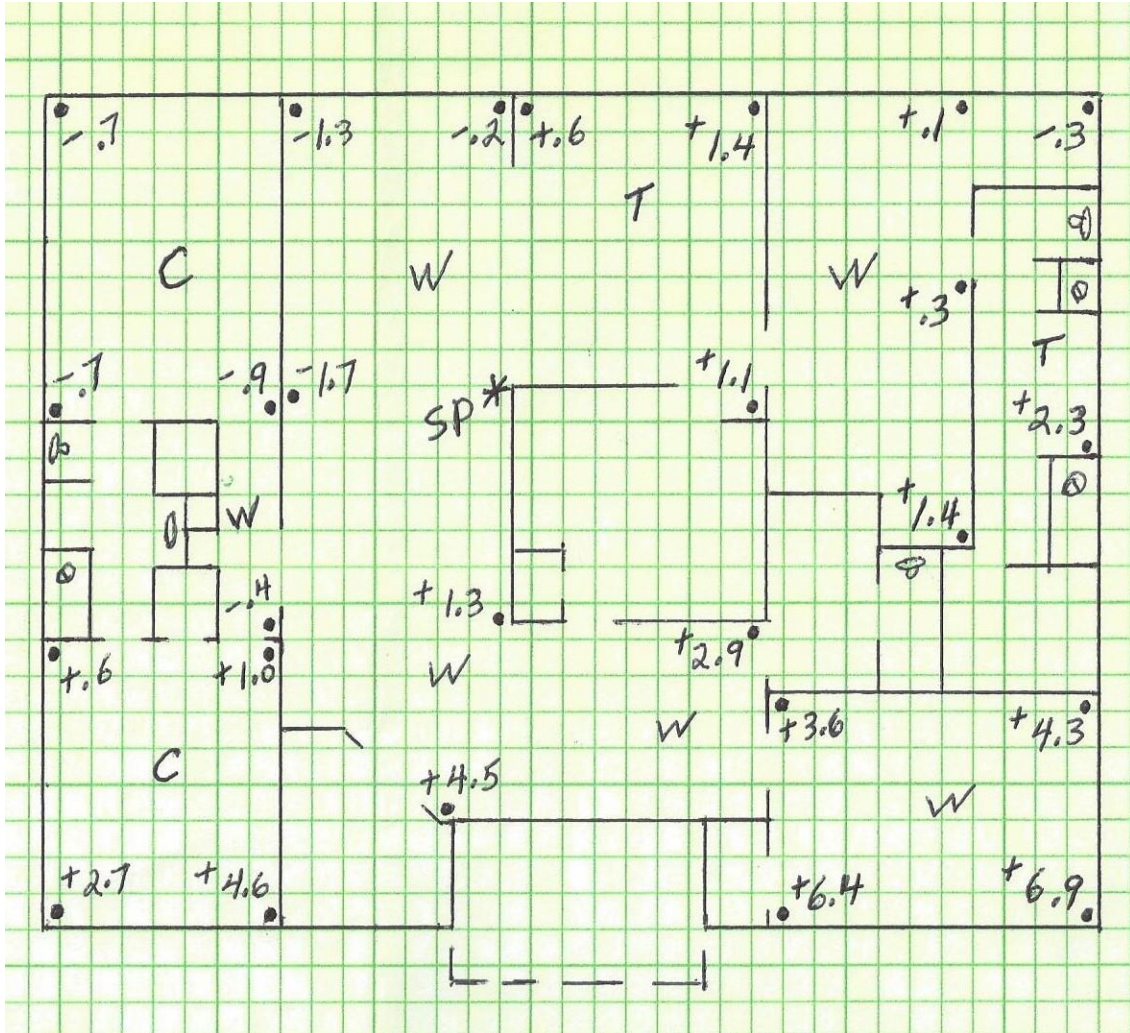 -.7 -1.3 -.2 +.6 +1.4 +.1 -.3
T
C W W
+.3
T
-.7 -.9 -1.7 +1.1
SP*
+2.3
W +1.4
-.4 +1.3
+.6 +1.0 +2.9
W
W +3.6 +4.3
C +4.5 W
+2.7 +4.6 +6.4 +6.9